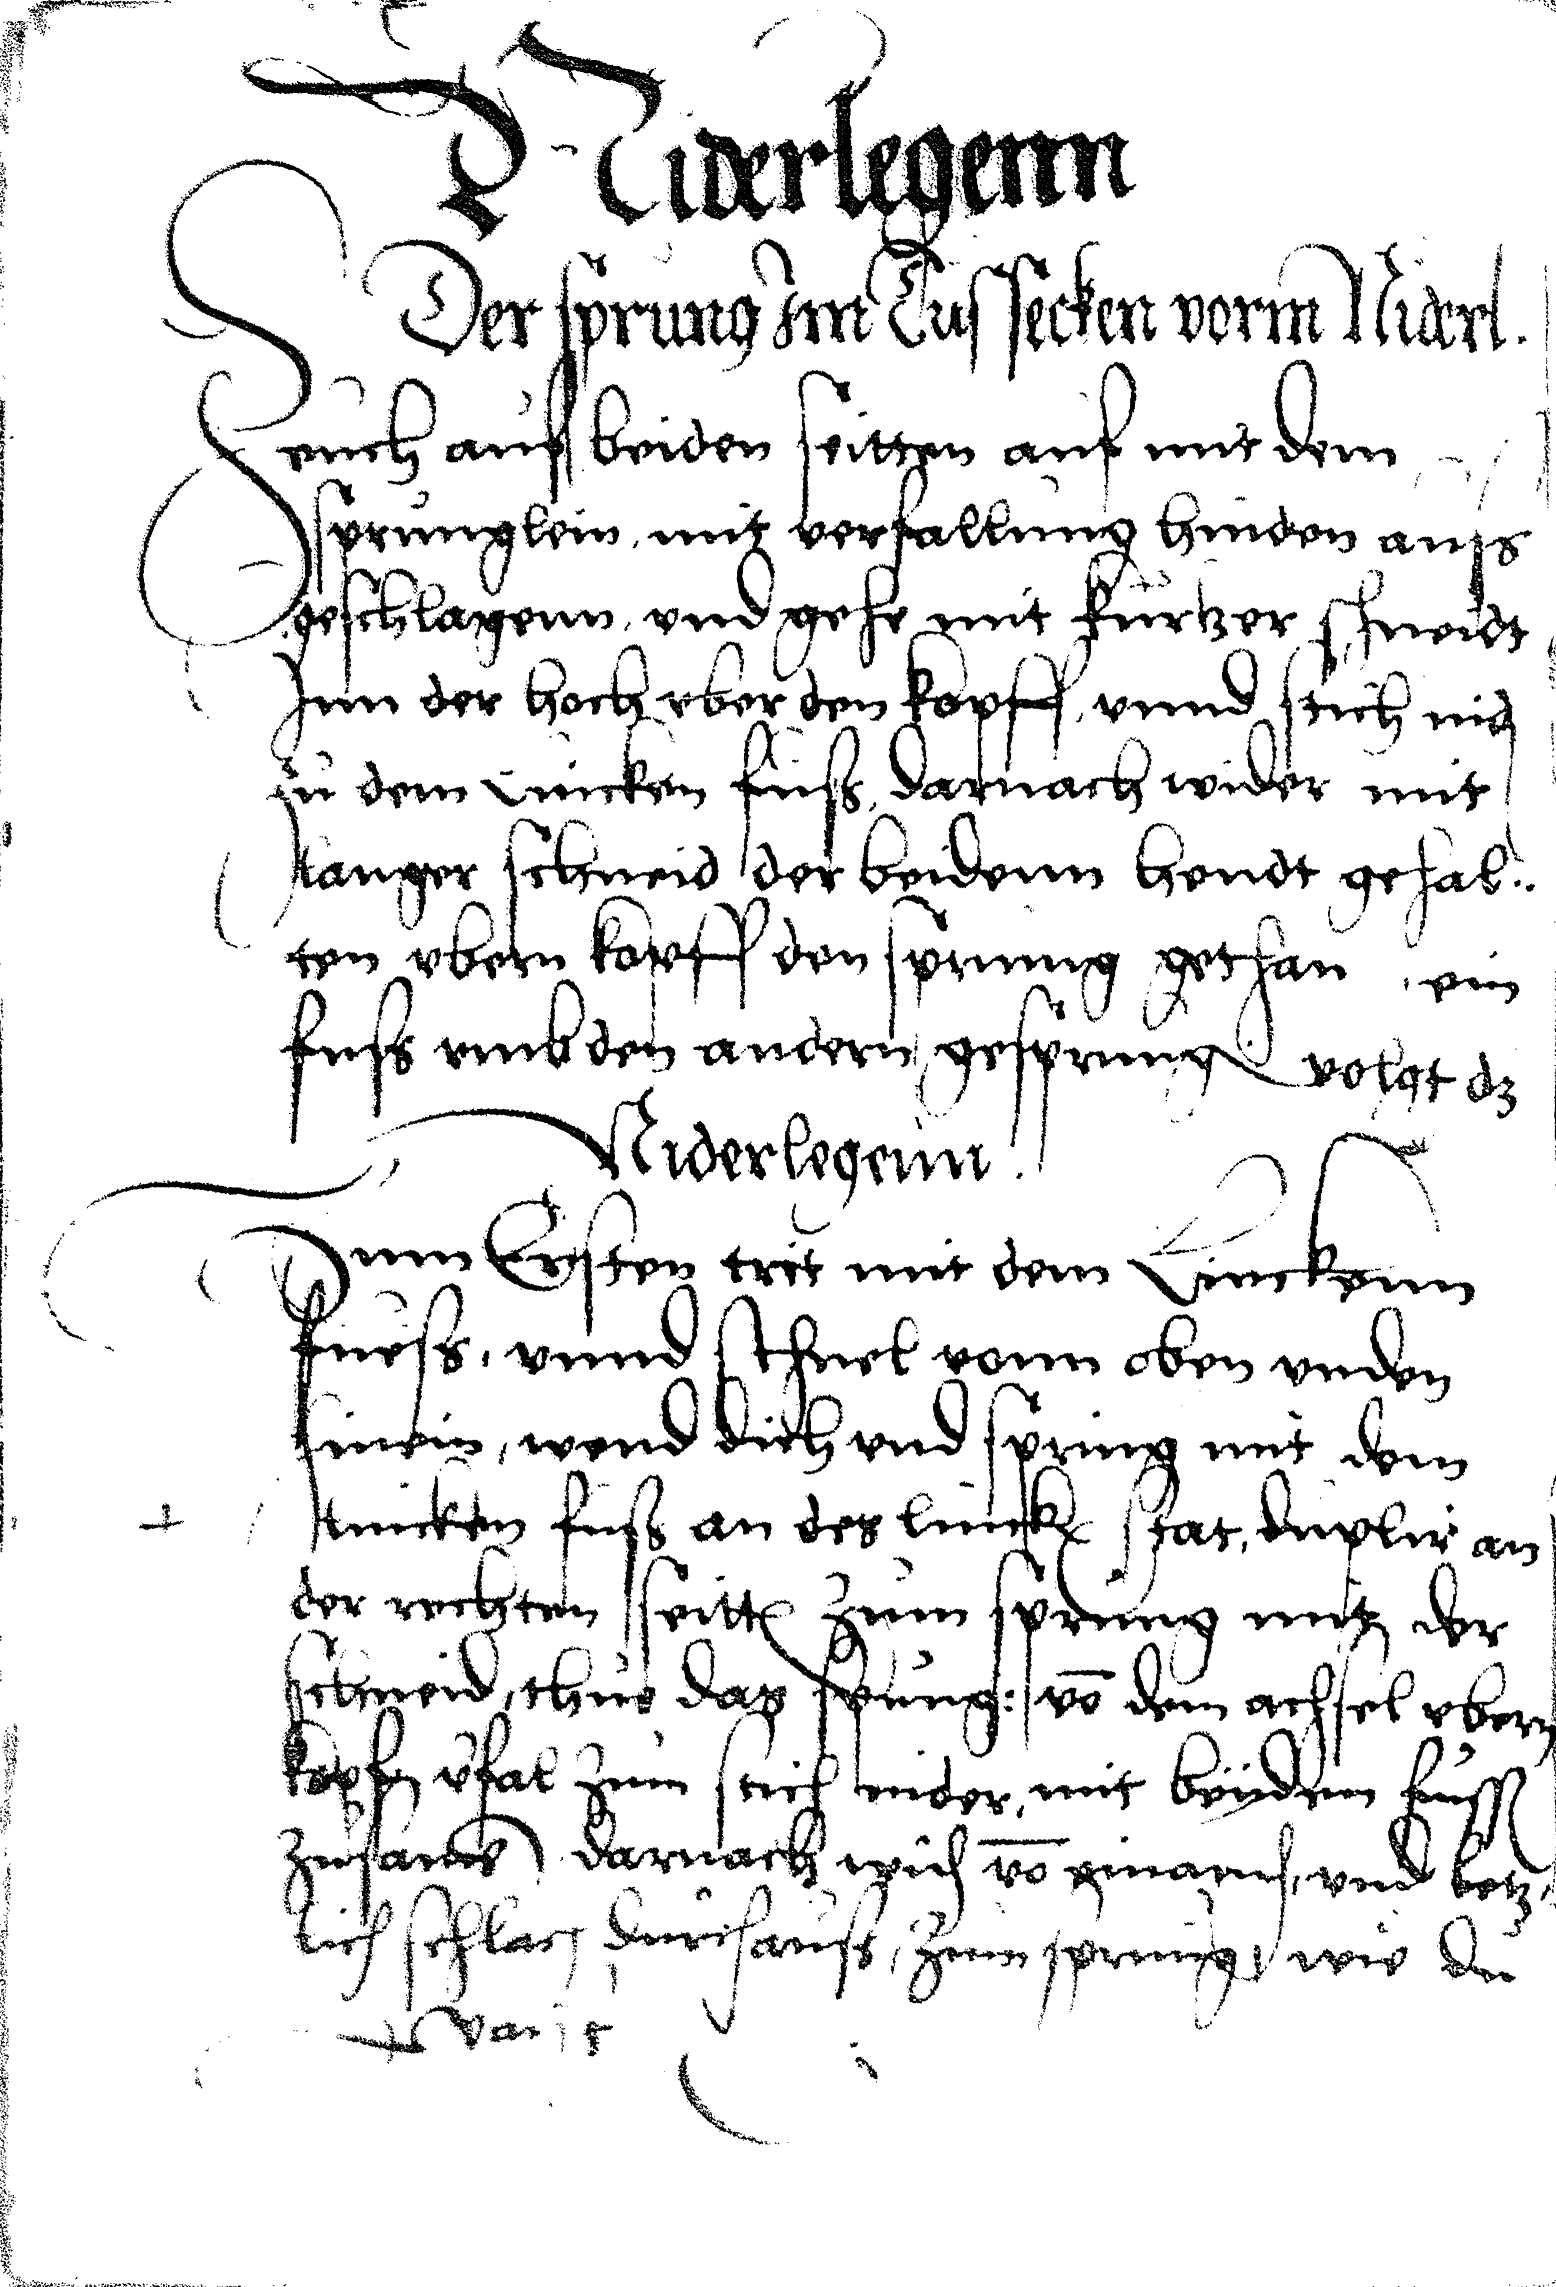 Niderlegenn
Der sprung Im Tussecken vorm Niderl.
Zeuch auf beiden seitten auf mit dem
sprunglein, mit verfallung hinden auss
geschlagenn, vnd gehe mit kurtzer schneidt
Inn der hoch vber den kopff, vnnd stich nid
zu dem Lincken fuss, darnach wider mit
langer schneid der beidenn hendt gehal..
ten vbern kopff den sprung gethan, ein
fuss vmb den andern gesprung volgt dz
Niderlegenn.
Zum Ersten trit mit dem Linckenn
fuess, vnnd schnel vonn oben vnden
hinein, wend dich vnd spring mit dem
lincken fuss an der linck stat, duplir an
der rechten seitt zum sprung mit der
schneid, thue den sprung: vo dem achsel vbern
kopff vfal zum stich nider, mit beyden fuss
zusamen darnach wich vo, vnd letz
lich schlag durchauss, zum sprung wie du
waist